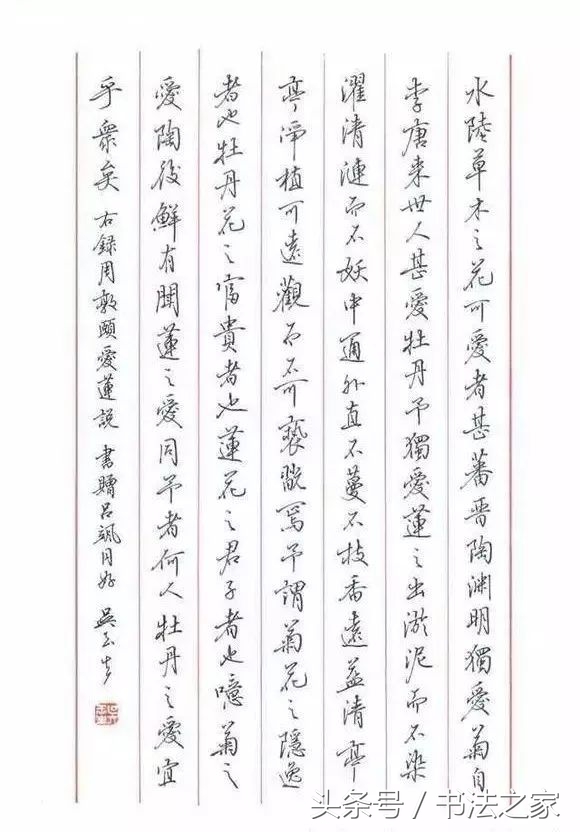 水陸草木之花可愛者甚蕃晋陶渊明獨愛菊自
李唐来世人甚愛牡丹予獨愛蓮之出淤泥而不染
濯清漣而不妖中通外直不蔓不枝香遠益清亭
亭淨植可遠觀而不可褻翫焉予謂菊花之隱逸
者也牡丹花之富貴者也蓮花之君子者也噫菊之
愛陶後鮮有聞蓮之愛同予者何人牡丹之愛宜
乎衆矣 右録周敦頤愛蓮説 書贈吕颯同好 吴玉生
头条号 / 书法之家